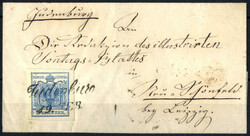 Judenburg
Den
Die Redaktion des illustrirten
Sontags-Blattes
in
Neu-Schönfeld
bey Leipzig.
Judenburg